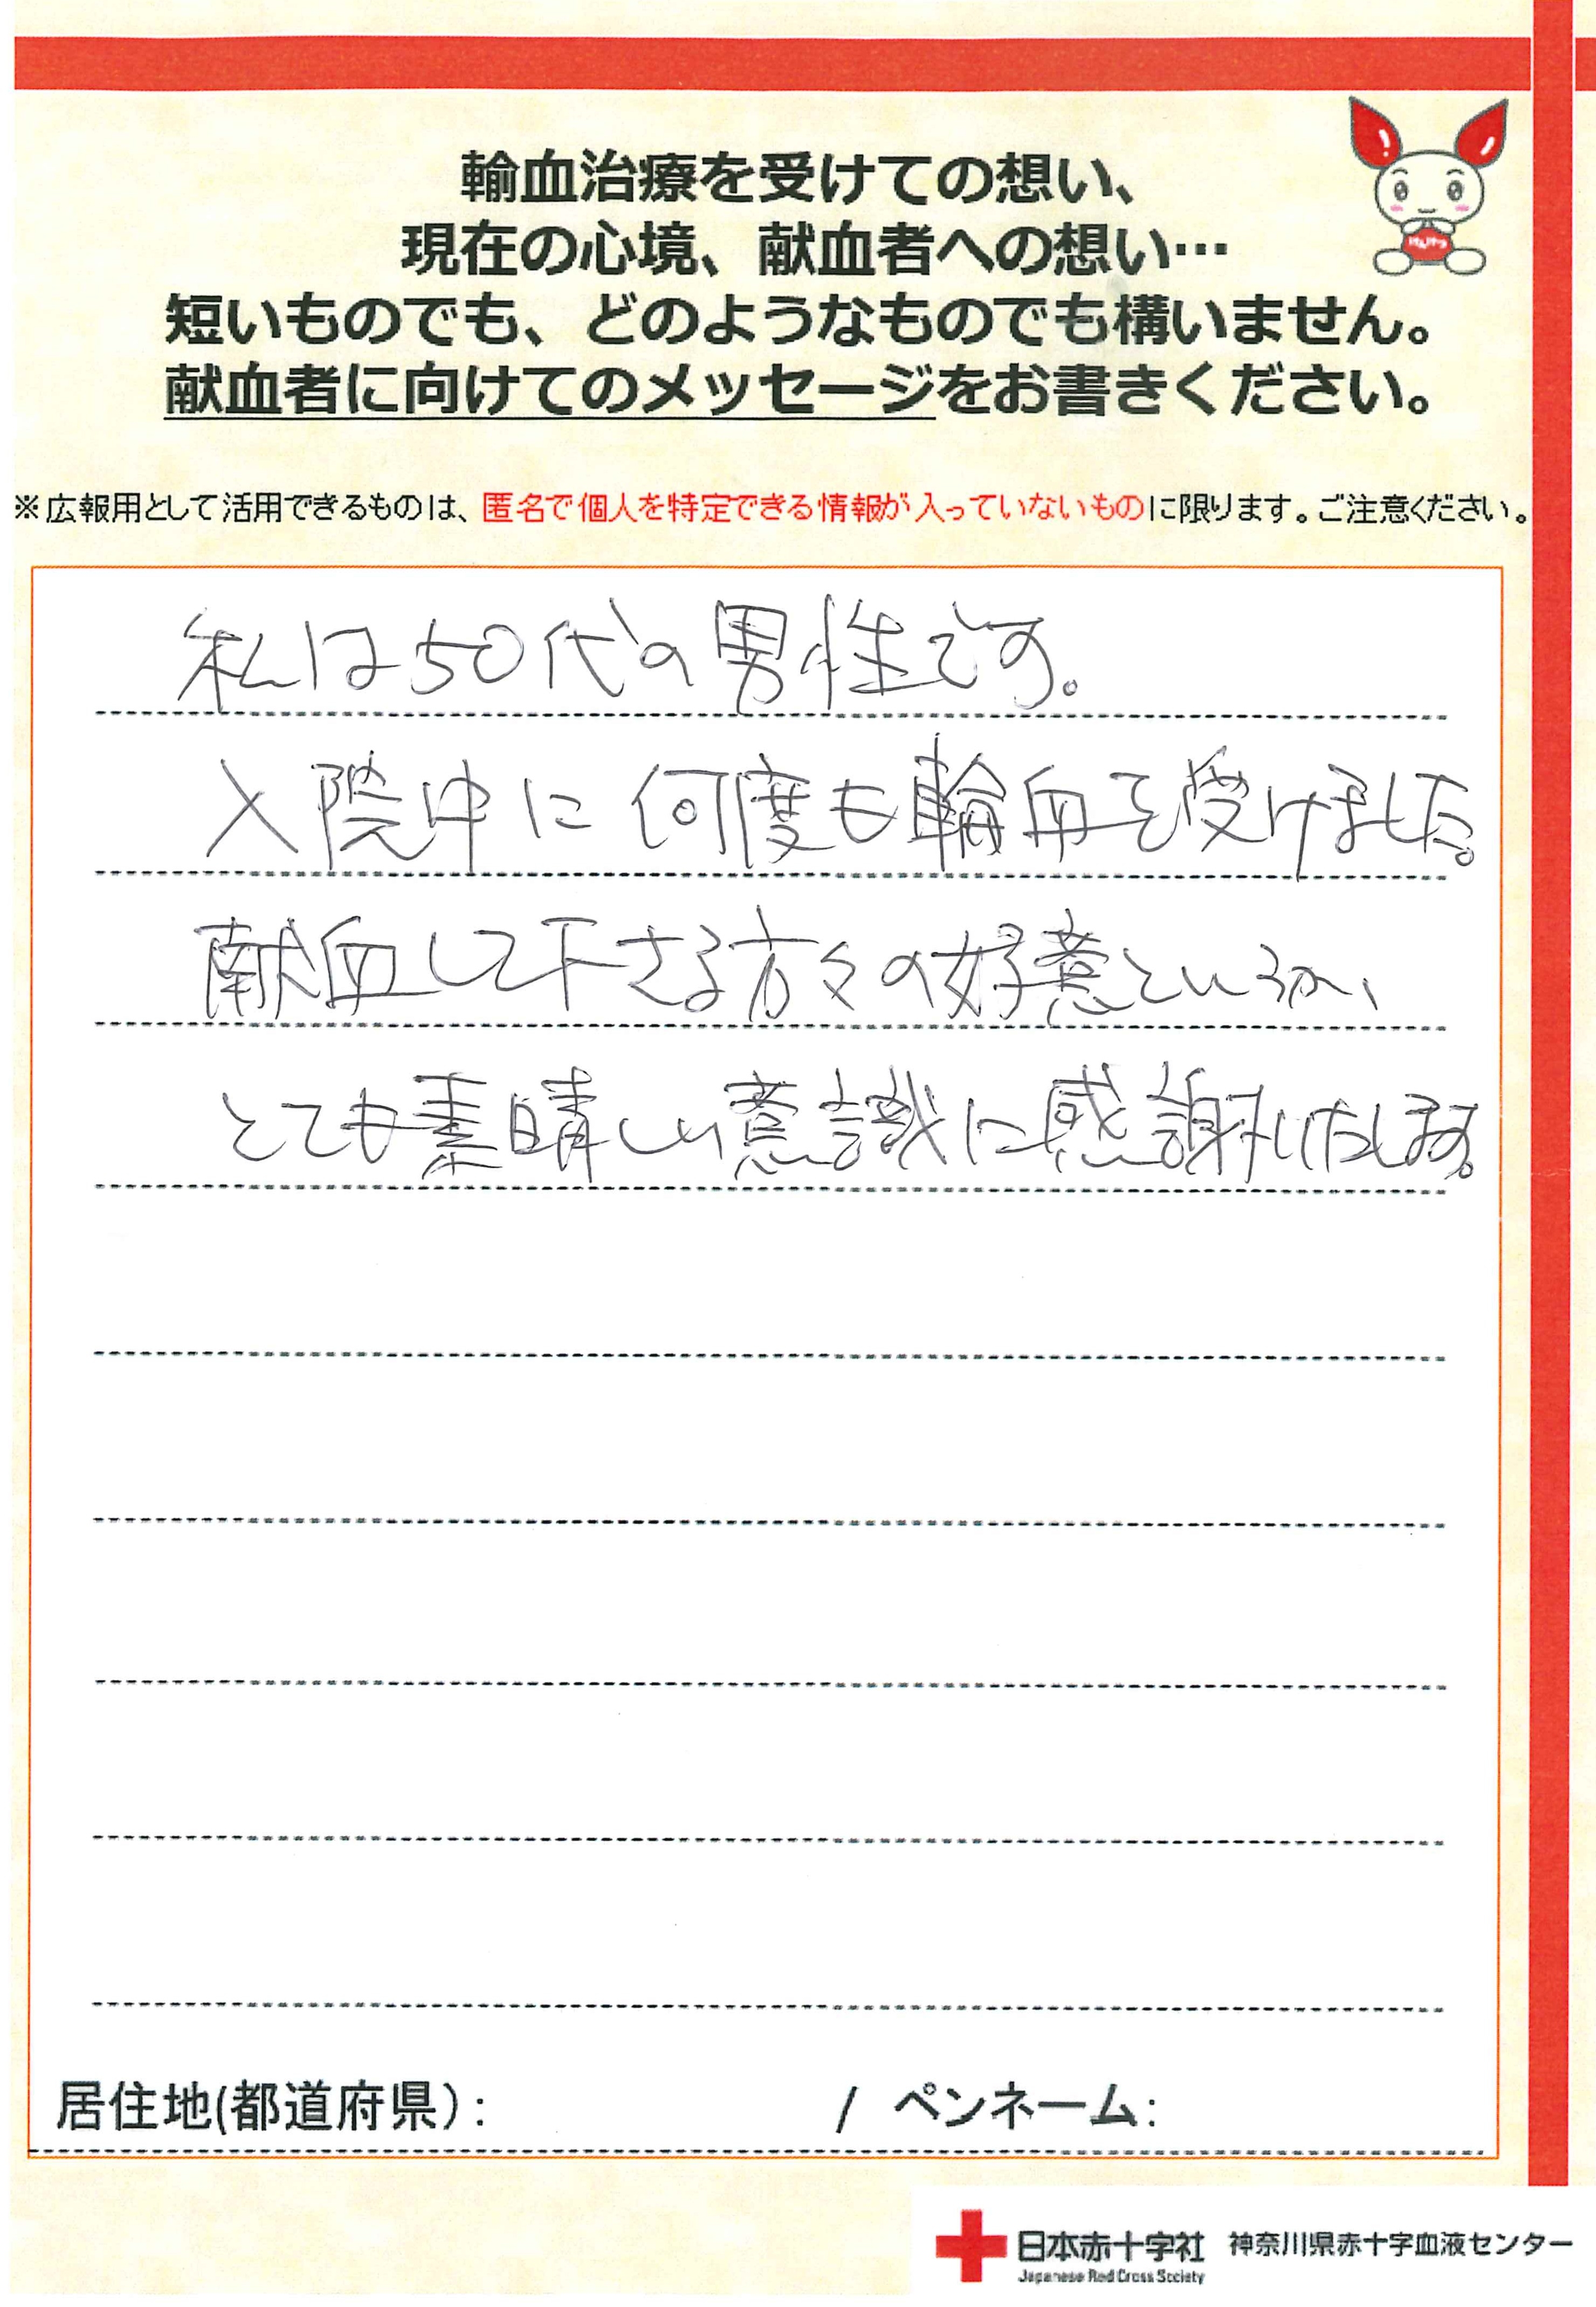 輸血治療を受けての想い、
現在の心境、献血者への想い…
短いものでも、どのようなものでも構いません。
献血者に向けてのメッセージをお書きください。
けんけつ
※広報用として活用できるものは、匿名で個人を特定できる情報が入っていないものに限ります。ご注意ください。
私は50代の男性です。
入院中に何度も輸血を受けました。
献血して下さる方々の好意というか、
とても素晴しい意識に感謝いたします。
居住地(都道府県): / ペンネーム:
日本赤十字社 神奈川県赤十字血液センター
Japanese Red Cross Society